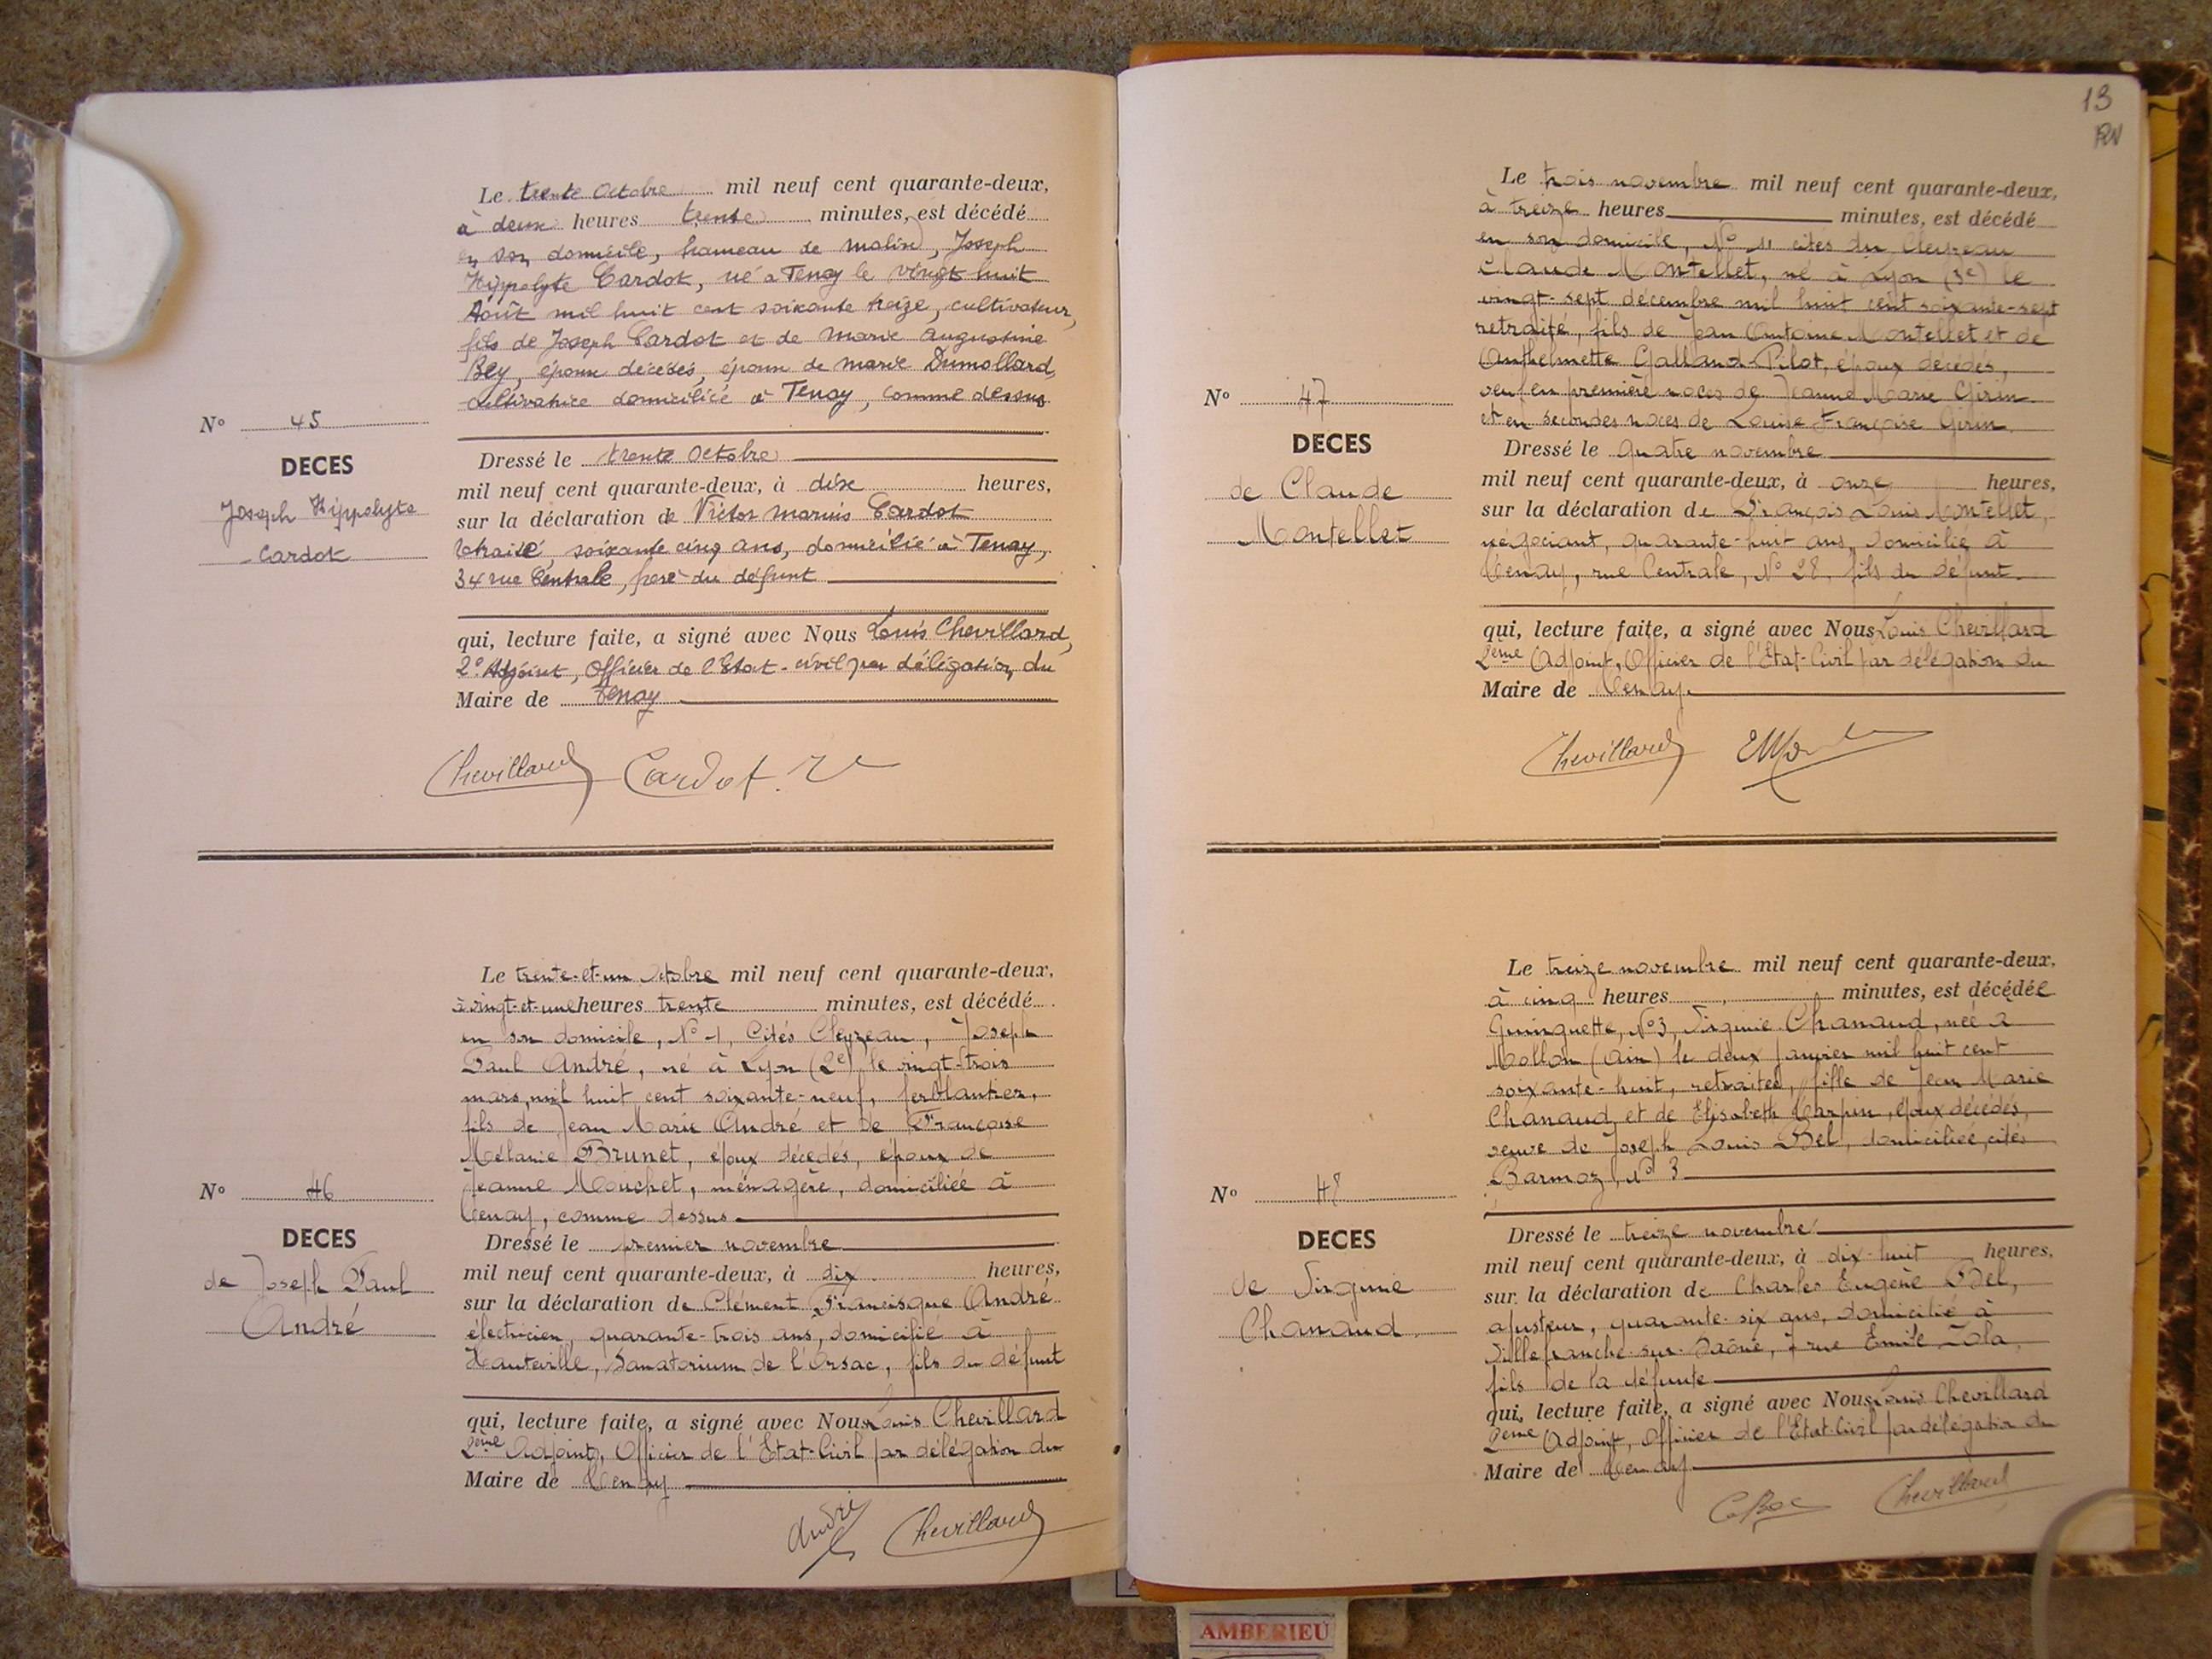 Le trente Octobre mil neuf cent quarante-deux,
à deux heures trente minutes, est décédé
en son domicile, hameau de Malix, Joseph
Hippolyte Cardot, né à Tenay le vingt huit
Août mil huit cent soixante treize, cultivateur,
fils de Joseph Cardot et de Marie Augustine
Bey, époux décédés, époux de Marie Dumollard,
cultivatrice domiciliée à Tenay, comme dessus
N° 45
DECES
Joseph Hippolyte
Cardot
Dressé le trente Octobre
mil neuf cent quarante-deux, à dix heures,
sur la déclaration de Victor Marius Cardot
retraité, soixante cinq ans, domicilié à Tenay,
34 rue Centrale, frère du défunt
qui, lecture faite, a signé avec Nous Louis Chevillard,
2e Adjoint, Officier de l'Etat-civil par délégation du
Maire de Tenay
Chevillard Cardot
Le trente-et-un Octobre mil neuf cent quarante-deux,
à vingt-et-une heures trente minutes, est décédé
en son domicile, N° 1, Cités Cleyzeau, Joseph
Paul André, né à Lyon (2e) le vingt-trois
mars mil huit cent soixante-neuf, ferblantier,
fils de Jean Marie André et de Françoise
Mélanie Brunet, époux décédés, époux de
Jeanne Mouchet, ménagère, domiciliée à
Tenay, comme dessus
N° 46
DECES
de Joseph Paul
André
Dressé le premier novembre
mil neuf cent quarante-deux, à dix heures,
sur la déclaration de Clément Francisque André
électricien, quarante-trois ans, domicilié à
Hauteville, Sanatorium de l'Orsac, fils du défunt
qui, lecture faite, a signé avec Nous Louis Chevillard
2ème Adjoint, Officier de l'Etat-Civil par délégation du
Maire de Tenay
André Chevillard
13
Le trois novembre mil neuf cent quarante-deux,
à treize heures minutes, est décédé
en son domicile, N° 11 cités du Cleyzeau
Claude Montellet, né à Lyon (3e) le
vingt-sept décembre mil huit cent soixante-sept
retraité, fils de Jean Antoine Montellet et de
Anthelmette Galland-Pilot, époux décédés,
veuf en première noces de Jeanne Marie Girin
et en secondes noces de Louise Françoise Girin.
N° 47
DECES
de Claude
Montellet
Dressé le quatre novembre
mil neuf cent quarante-deux, à onze heures,
sur la déclaration de François Louis Montellet,
négociant, quarante-huit ans, domicilié à
Tenay, rue Centrale, N° 28, fils du défunt.
qui, lecture faite, a signé avec Nous Louis Chevillard
2ème Adjoint, Officier de l'Etat-Civil par délégation du
Maire de Tenay.
Chevillard
Le treize novembre mil neuf cent quarante-deux,
à cinq heures minutes, est décédée
Guinguette, N° 3, Virginie Chanaud, née à
Mollon (Ain) le deux janvier mil huit cent
soixante-huit, retraitée, fille de Jean Marie
Chanaud et de Elisabeth Karpin, époux décédés,
veuve de Joseph Louis Bel, domiciliée, cités
Barmoz, N° 3
N° 48
DECES
de Virginie
Chanaud
Dressé le treize novembre
mil neuf cent quarante-deux, à dix-huit heures,
sur la déclaration de Charles Eugène Bel,
ajusteur, quarante-six ans, domicilié à
Villefranche-sur-Saône, rue Emile Zola,
fils de la défunte
qui, lecture faite, a signé avec Nous Louis Chevillard
2ème Adjoint, Officier de l'Etat-Civil par délégation du
Maire de Tenay
Chevillard
AMBERIEU